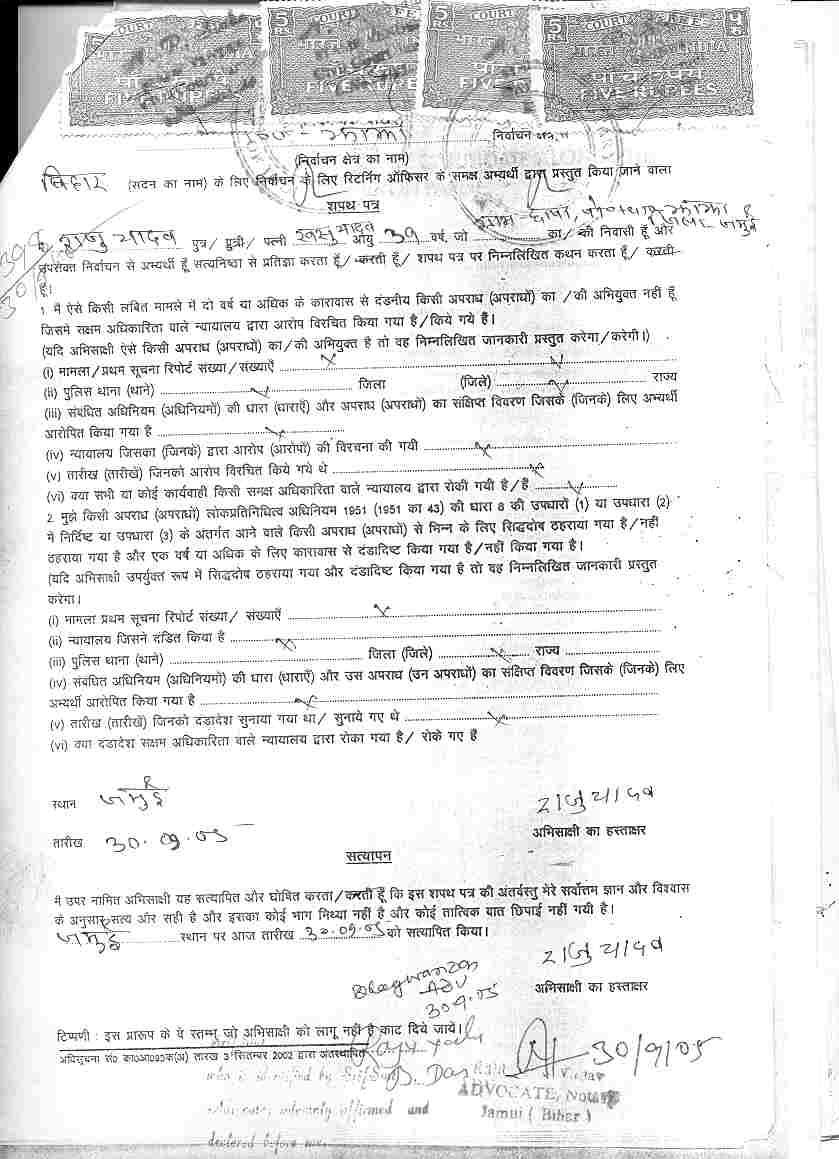 5 RS. COURT FEE
5 RS. COURT FEE
5 RS. COURT FEE
5 RS. COURT FEE 5 रु.
भारत INDIA
पाँच रुपये
FIVE RUPEES
FIVE RUPEES
FIVE RUPEES
FIVE RUPEES
निर्वाचन क्षेत्र
(निर्वाचन क्षेत्र का नाम)
बिहार (सदन का नाम) के लिए निर्वाचन के लिए रिटर्निंग ऑफिसर के समक्ष अभ्यर्थी द्वारा प्रस्तुत किया जाने वाला
शपथ पत्र
राजु यादव पुत्र/ पुत्री/ पत्नी यादव आयु 39 वर्ष, जो का/ की निवासी हूँ और
जिला- जमुई
उपरोक्त निर्वाचन से अभ्यर्थी हूँ सत्यनिष्ठा से प्रतिज्ञा करता हूँ/ करती हूँ/ शपथ पत्र पर निम्नलिखित कथन करता हूँ/ करती
हूँ।
1. मैं ऐसे किसी लंबित मामले में दो वर्ष या अधिक के कारावास से दंडनीय किसी अपराध (अपराधों) का /की अभियुक्त नहीं हूँ
जिसमें सक्षम अधिकारिता वाले न्यायालय द्वारा आरोप विरचित किया गया है/किये गये हैं।
(यदि अभिसाक्षी ऐसे किसी अपराध (अपराधों) का/की अभियुक्त है तो वह निम्नलिखित जानकारी प्रस्तुत करेगा/करेगी।)
(i) मामला/प्रथम सूचना रिपोर्ट संख्या/संख्याएँ
(ii) पुलिस थाना (थाने) जिला (जिले) राज्य
(iii) संबंधित अधिनियम (अधिनियमों) की धारा (धाराएँ) और अपराध (अपराधों) का संक्षिप्त विवरण जिसके (जिनके) लिए अभ्यर्थी
आरोपित किया गया है
(iv) न्यायालय जिसका (जिनके) द्वारा आरोप (आरोपों) की विरचना की गयी
(v) तारीख (तारीखें) जिनको आरोप विरचित किये गये थे
(vi) क्या सभी या कोई कार्यवाही किसी समक्ष अधिकारिता वाले न्यायालय द्वारा रोकी गयी है/हैं
2. मुझे किसी अपराध (अपराधों) लोकप्रतिनिधित्व अधिनियम 1951 (1951 का 43) की धारा 8 की उपधारों (1) या उपधारा (2)
में निर्दिष्ट या उपधारा (3) के अंतर्गत आने वाले किसी अपराध (अपराधों) से भिन्न के लिए सिद्धदोष ठहराया गया है/नहीं
ठहराया गया है और एक वर्ष या अधिक के लिए कारावास से दंडादिष्ट किया गया है/नहीं किया गया है।
(यदि अभिसाक्षी उपर्युक्त रूप में सिद्धदोष ठहराया गया और दंडादिष्ट किया गया है तो वह निम्नलिखित जानकारी प्रस्तुत
करेगा।
(i) मामला प्रथम सूचना रिपोर्ट संख्या/ संख्याएँ
(ii) न्यायालय जिसने दंडित किया है
(iii) पुलिस थाना (थाने) जिला (जिले) राज्य
(iv) संबंधित अधिनियम (अधिनियमों) की धारा (धाराएँ) और उस अपराध (उन अपराधों) का संक्षिप्त विवरण जिसके (जिनके) लिए
अभ्यर्थी आरोपित किया गया है
(v) तारीख (तारीखें) जिनको दंडादेश सुनाया गया था/ सुनाये गए थे
(vi) क्या दंडादेश सक्षम अधिकारिता वाले न्यायालय द्वारा रोका गया है/ रोके गए हैं
स्थान जमुई
राजु यादव
तारीख 30.09.05
अभिसाक्षी का हस्ताक्षर
सत्यापन
मैं उपर नामित अभिसाक्षी यह सत्यापित और घोषित करता/करती हूँ कि इस शपथ पत्र की अंतर्वस्तु मेरे सर्वोत्तम ज्ञान और विश्वास
के अनुसार सत्य और सही है और इसका कोई भाग मिथ्या नहीं है और कोई तात्विक बात छिपाई नहीं गयी है।
जमुई स्थान पर आज तारीख 30.09.05 को सत्यापित किया।
राजु यादव
ADV
30.9.05
अभिसाक्षी का हस्ताक्षर
टिप्पणी : इस प्रारूप के वे स्तम्भ जो अभिसाक्षी को लागू नहीं है काट दिये जायें।
30/9/05
अधिसूचना सं० का०आ०93क(अ) तारीख 3 सितम्बर 2002 द्वारा अंतःस्थापित
who is identified by
ADVOCATE, Notary
Jamui ( Bihar )
solemnly affirmed and
declared before me.